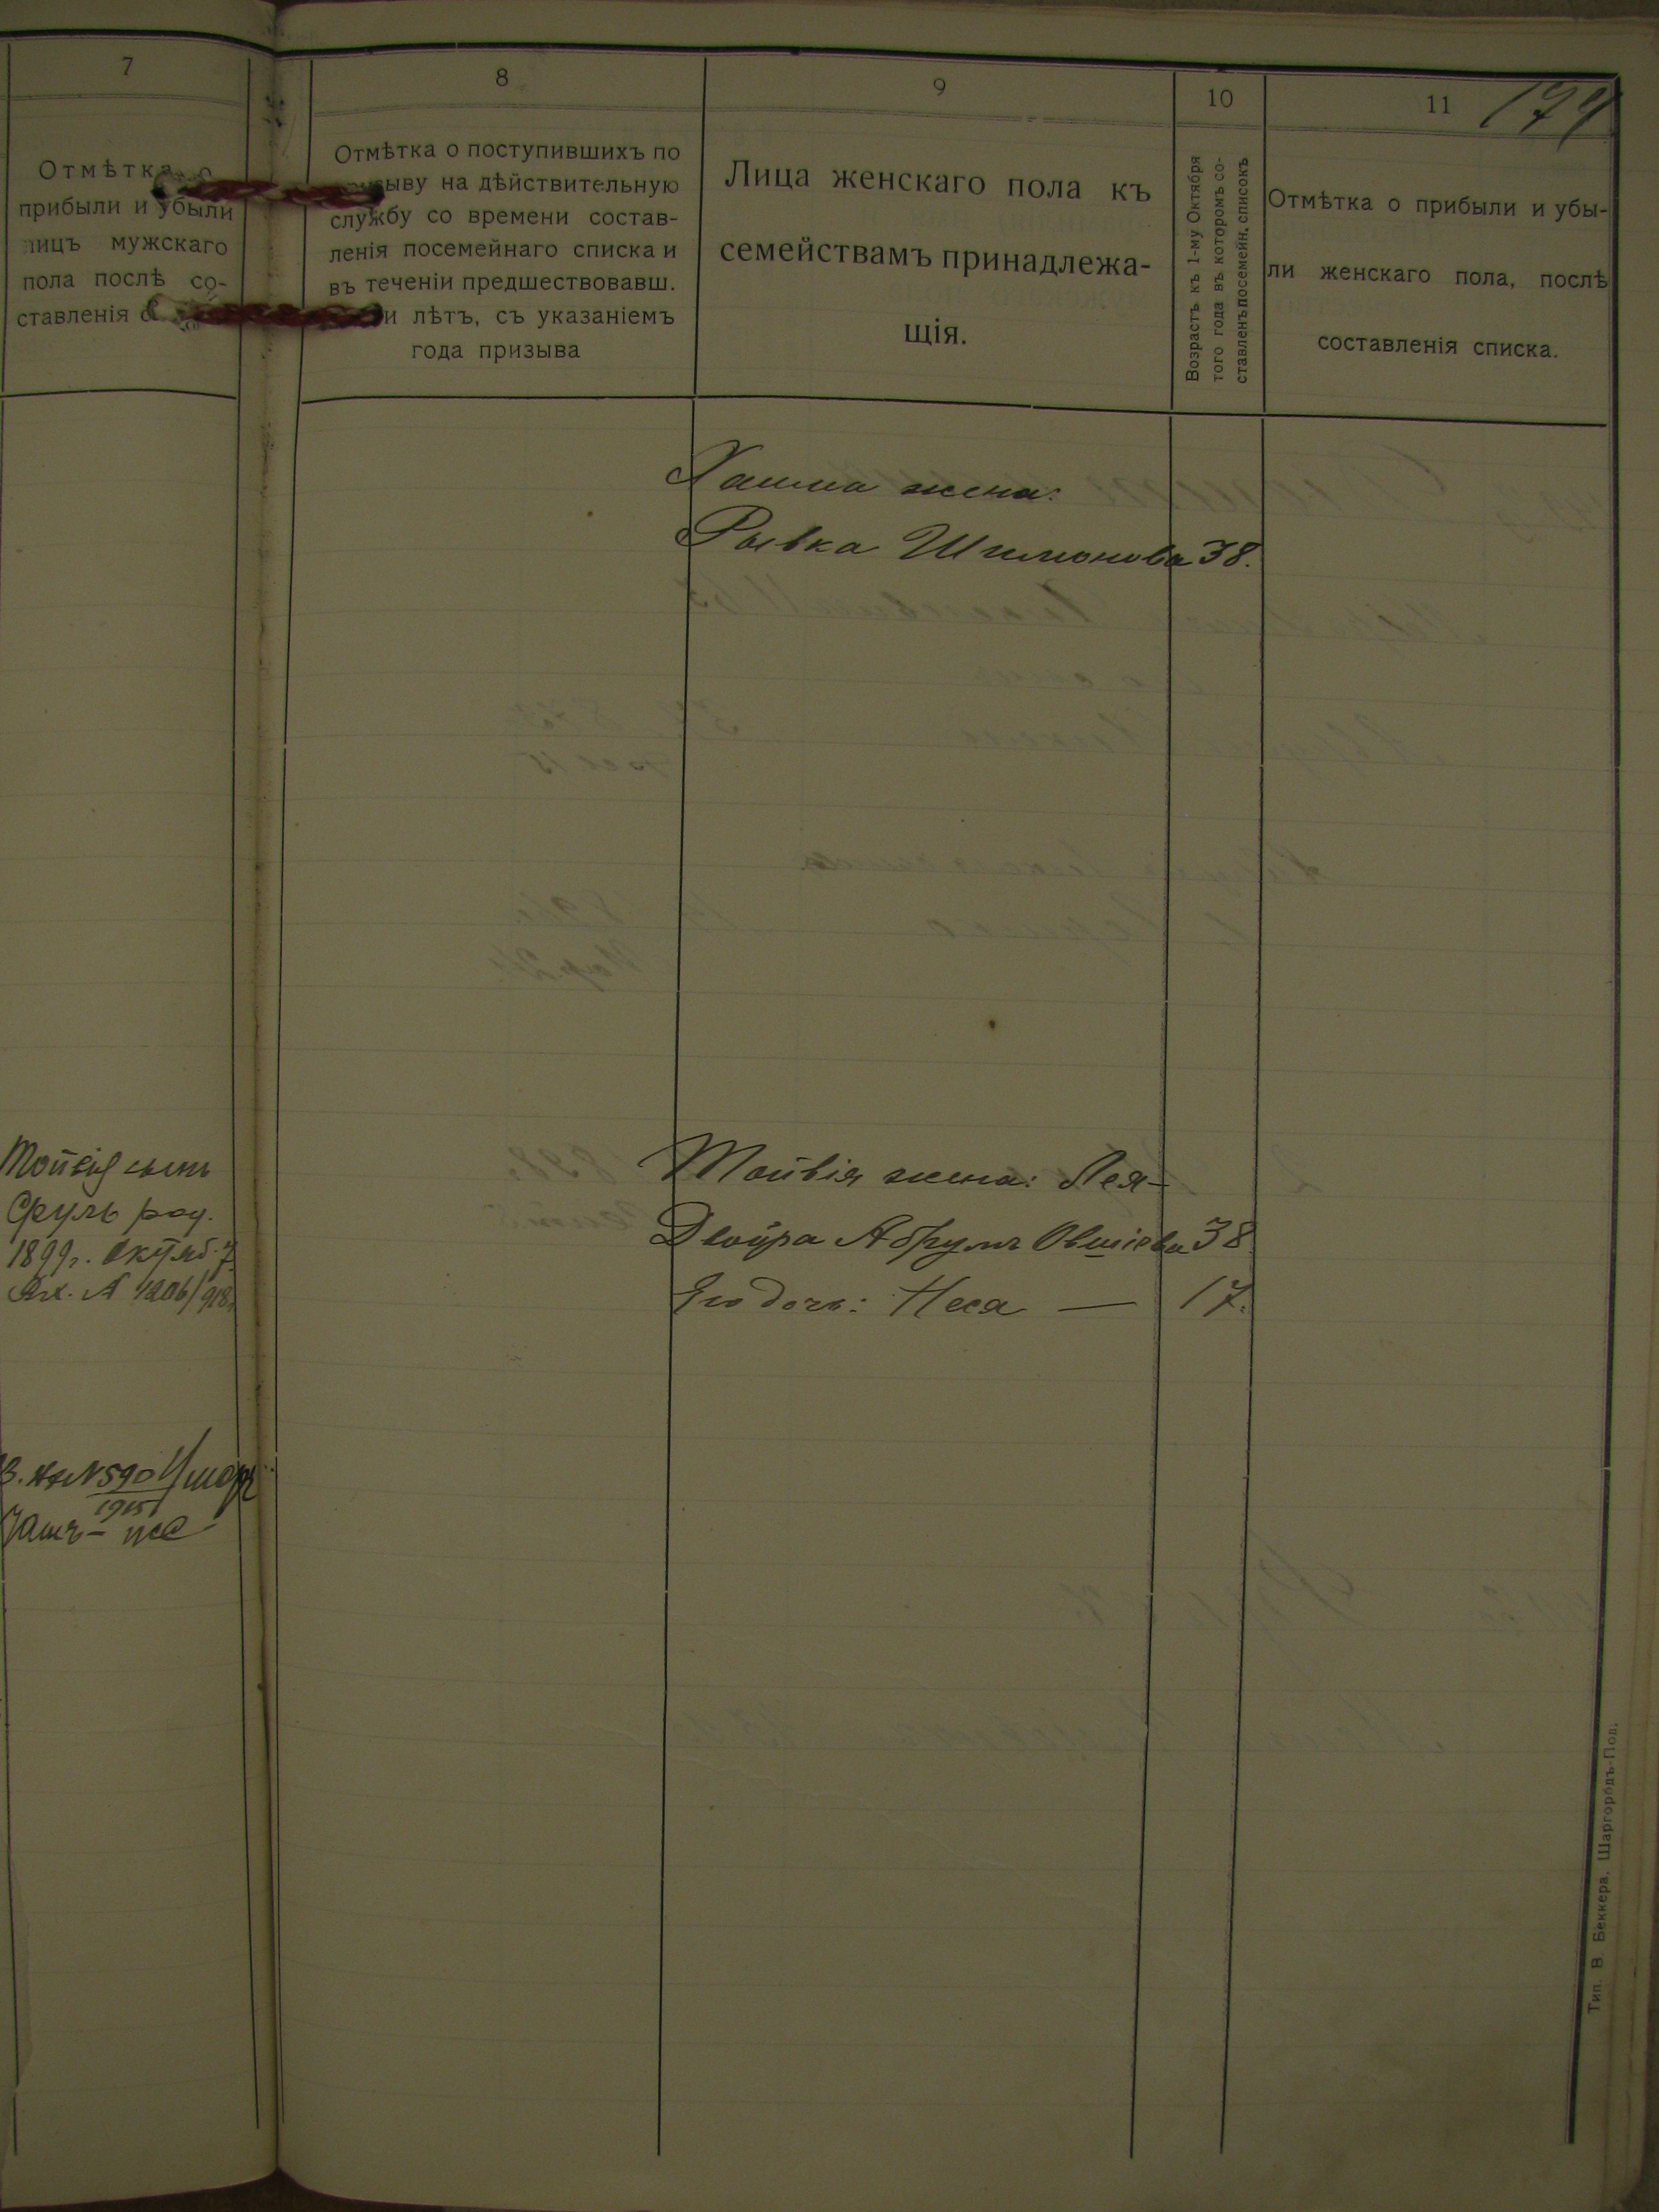 7
Отмѣтка о
прибыли и убыли
лицъ мужскаго
пола послѣ со-
ставленія
8
Отмѣтка о поступившихъ по
зыву на дѣйствительную
службу со времени состав-
ленія посемейнаго списка и
въ теченіи предшествовавш.
и лѣтъ, съ указаніемъ
года призыва
9
Лица женскаго пола къ
семействамъ принадлежа-
щія.
10
Возрастъ къ 1-му Октября
того года въ которомъ со-
ставленъ посемейн. списокъ
11
Отмѣтка о прибыли и убы-
ли женскаго пола, послѣ
составленія списка.
174
жена:
Рывка Шимонова 38.
Тойвія сынъ
Сруль род.
1899г. Октяб. 7
1206/918
Тойвія жена: Лея-
Двойра Абрумъ Овшіева 38
Его дочь: Неса — 17.
№ 590
1915
Тип. В. Беккера, Шаргородъ-Под.